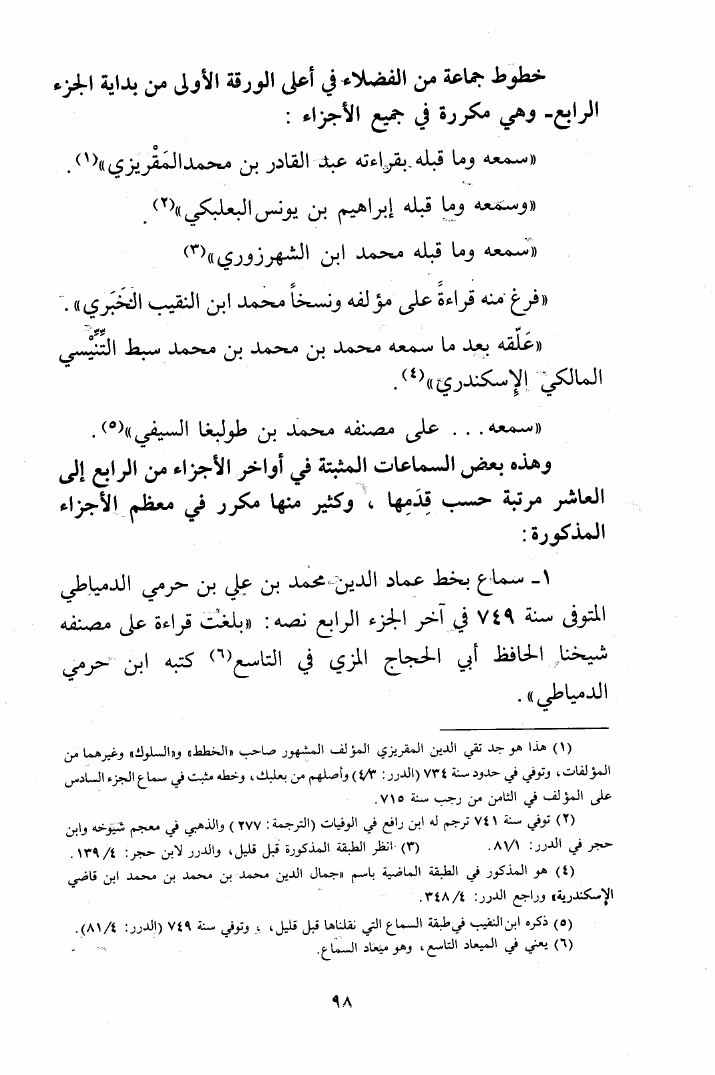 خطوط جماعة من الفضلاء في أعلى الورقة الأولى من بداية الجزء
الرابع- وهي مكررة في جميع الأجزاء :
«سمعه وما قبله بقراءته عبد القادر بن محمد المَقْريزي»(١).
«وسمعه وما قبله إبراهيم بن يونس البعلبكي»(٢).
«سمعه وما قبله محمد ابن الشهرزوري»(٣)
«فرغ منه قراءةً على مؤلفه ونسخاً محمد ابن النقيب الخَبَري».
«عَلّقه بعد ما سمعه محمد بن محمد بن محمد سبط التِّنِّيْسي
المالكي الإسكندري»(٤).
«سمعه... على مصنفه محمد بن طولبغا السيفي»(٥).
وهذه بعض السماعات المثبتة في أواخر الأجزاء من الرابع إلى
العاشر مرتبة حسب قِدَمِها ، وكثير منها مكرر في معظم الأجزاء
المذكورة:
١- سماع بخط عماد الدين محمد بن علي بن حرمي الدمياطي
المتوفى سنة ٧٤٩ في آخر الجزء الرابع نصه: «بلغت قراءة على مصنفه
شيخنا الحافظ أبي الحجاج المزي في التاسع(٦) كتبه ابن حرمي
الدمياطي».
(١) هذا هو جد تقي الدين المقريزي المؤلف المشهور صاحب «الخطط» و«السلوك» وغيرهما من
المؤلفات، وتوفي في حدود سنة ٧٣٤ (الدرر: ٤/٣) وأصلهم من بعلبك، وخطه مثبت في سماع الجزء السادس
على المؤلف في الثامن من رجب سنة ٧١٥.
(٢) توفي سنة ٧٤١ ترجم له ابن رافع في الوفيات (الترجمة: ٢٧٧) والذهبي في معجم شيوخه وابن
حجر في الدرر: ٨١/١. (٣) انظر الطبقة المذكورة قبل قليل، والدرر لابن حجر: ١٣٩/٤.
(٤) هو المذكور في الطبقة الماضية باسم «جمال الدين محمد بن محمد بن محمد ابن قاضي
الإسكندرية» وراجع الدرر: ٣٤٨/٤.
(٥) ذكره ابن النقيب في طبقة السماع التي نقلناها قبل قليل، وتوفي سنة ٧٤٩ (الدرر: ٨١/٤).
(٦) يعني في الميعاد التاسع، وهو ميعاد السماع.
٩٨